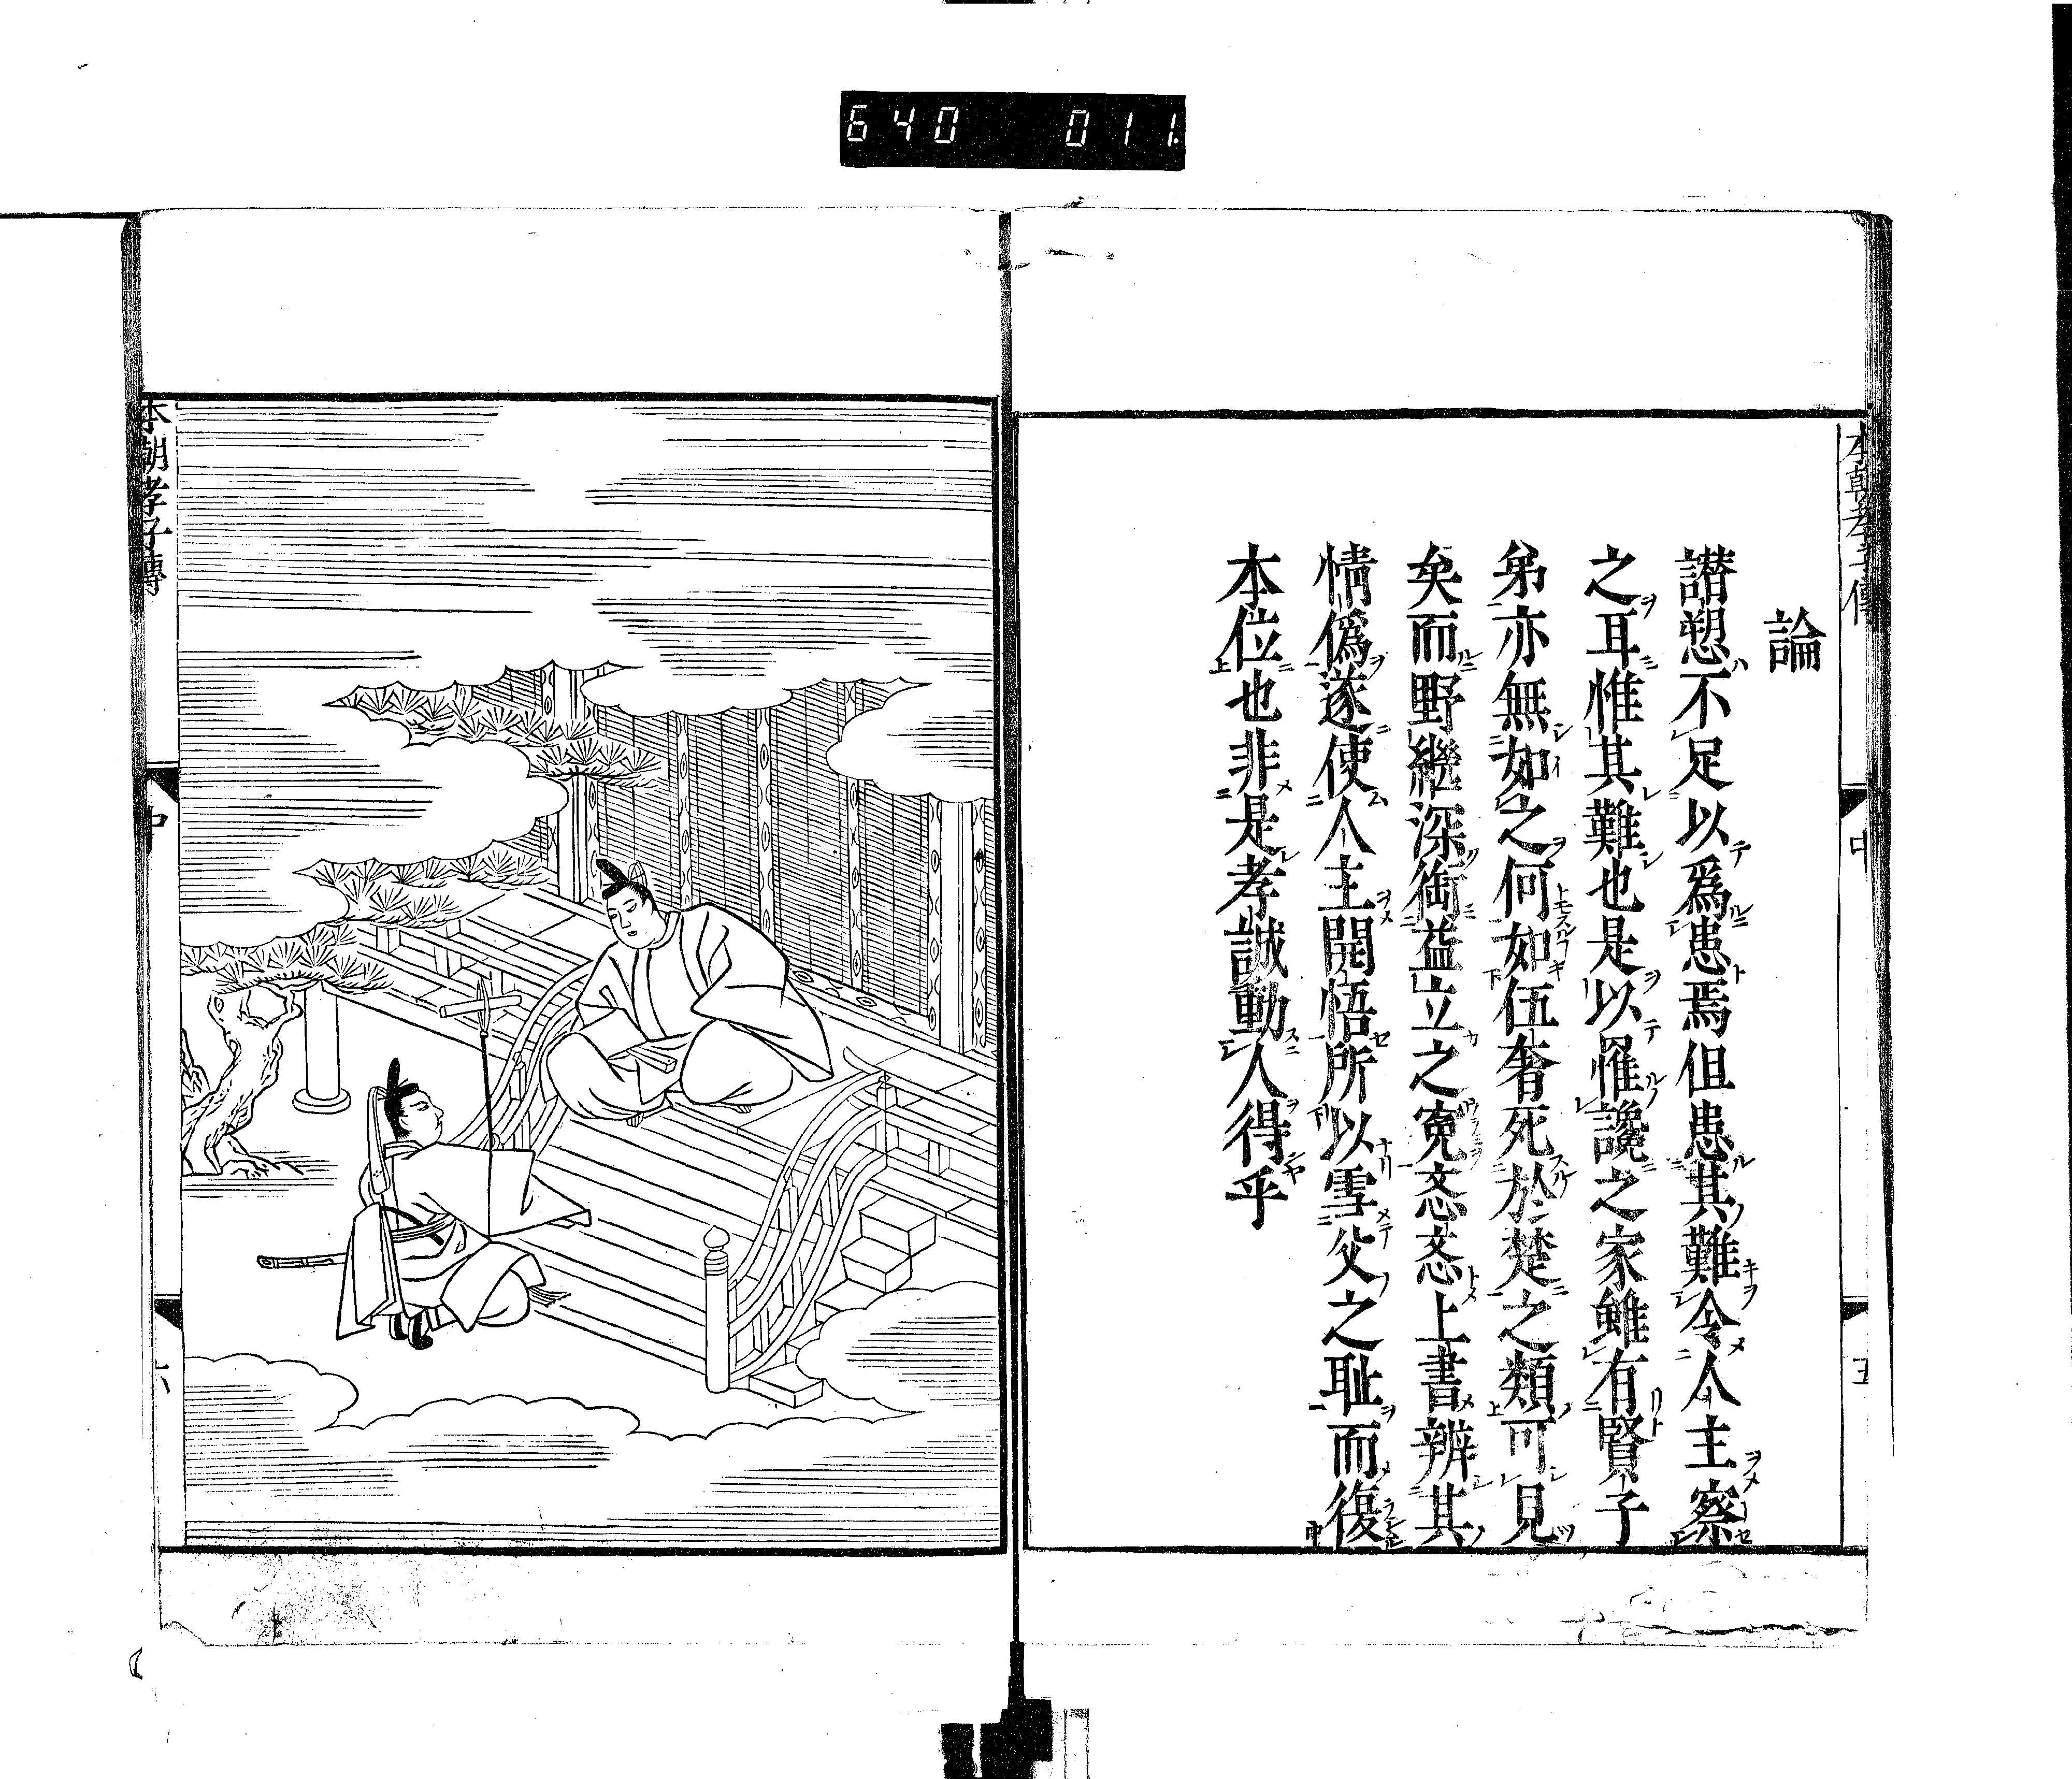 640 011
本朝孝子傳
中
五
論
譖愬不足以爲患焉但患其難令人主察
之耳惟其難也是以罹讒之家雖有賢子
弟亦無如之何如伍奢死於楚之類可見
矣而野繼深銜益立之寃忞忞上書辨其
情僞遂使人主開悟所以雪父之耻而復
本位也非是孝誠動人得乎
本朝孝子傳
中
六